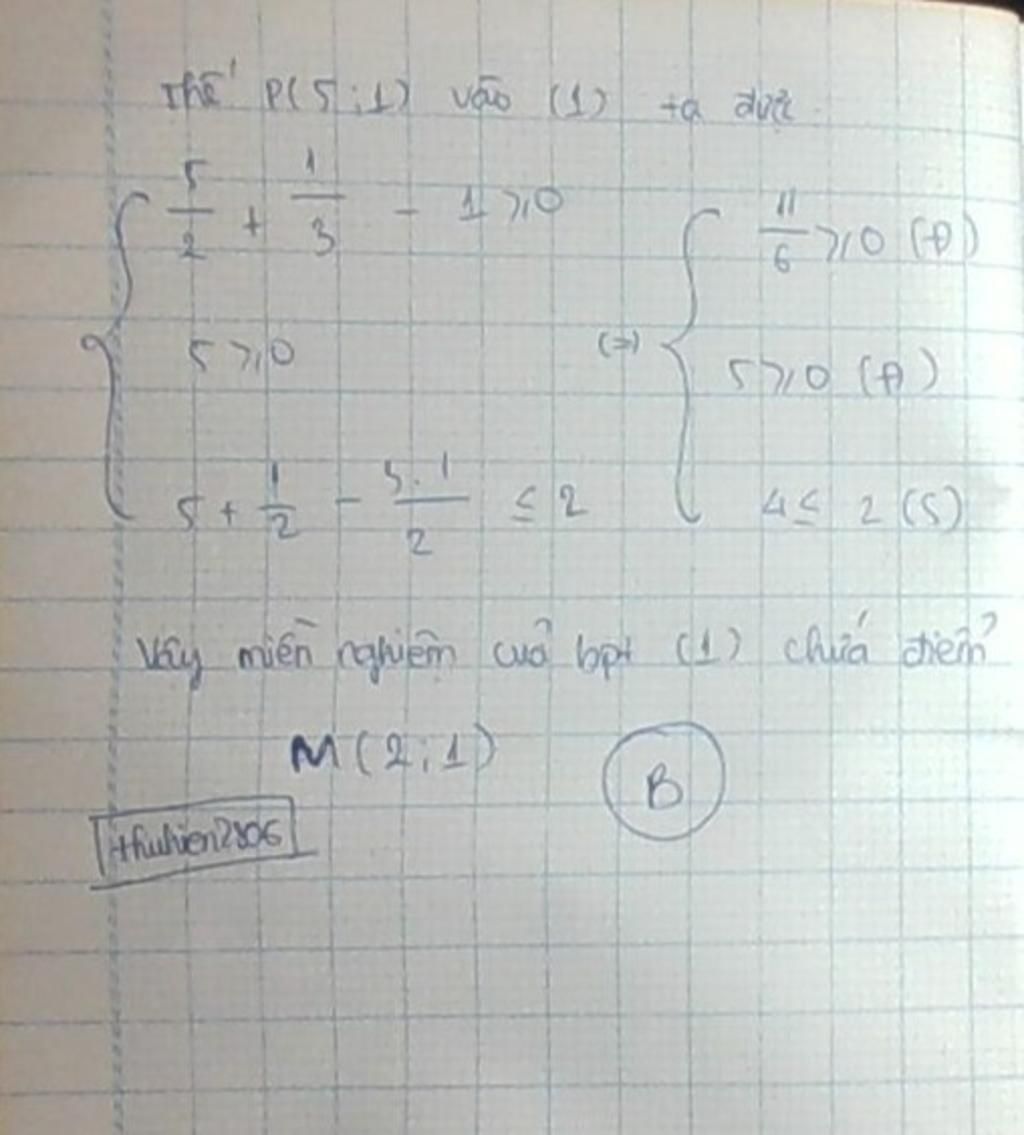 Thế P(5;1) vào (1) ta được
5/2 + 1/3 - 1 ⩾ 0
5 ⩾ 0
5 + 1/2 - 3.1/2 ≤ 2
(=)
11/6 ⩾ 0 (Đ)
5 ⩾ 0 (Đ)
4 ≤ 2 (S)
Vậy miền nghiệm của bpt (1) chứa điểm
M(2;1)
B
thuhien2806